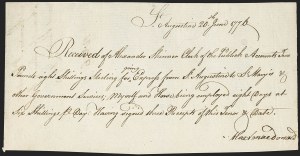 St Augustine 20th June 1776
Received of Alexander Skinner Clerk of the Publick Accounts Two
Pounds eight Shillings Sterling for going Express from St Augustine to St Mary's &
other Government Services, Myself and Horse being employed eight Days at
Six Shillings pr Day Having signed three Receipts of this Tenor & Date.